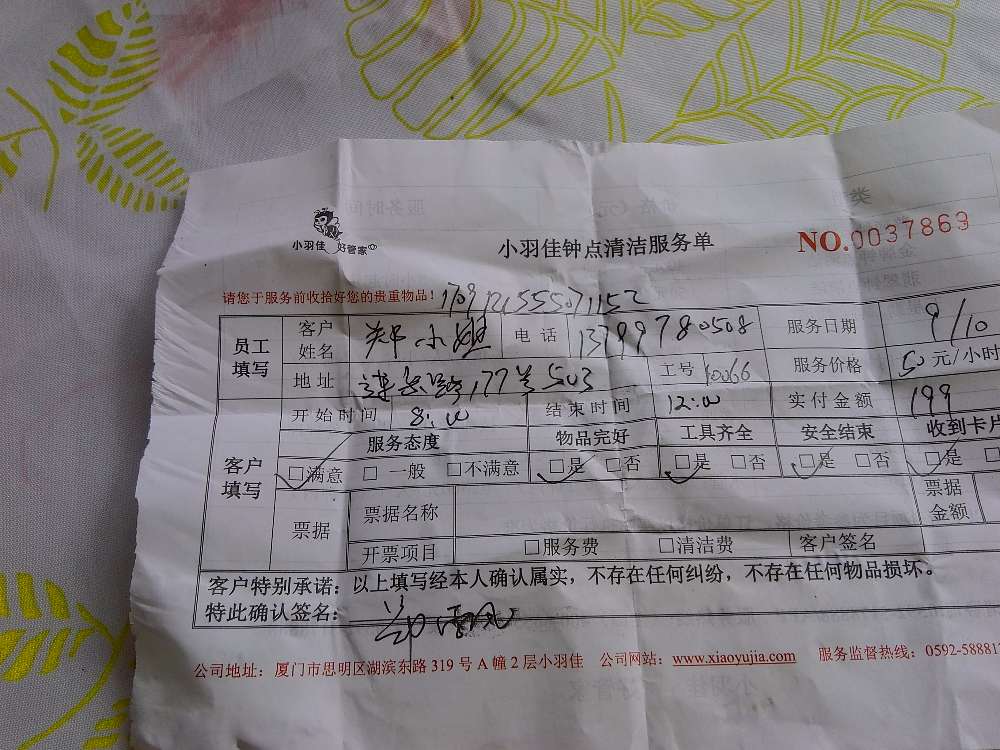 小羽佳 好管家
小羽佳钟点清洁服务单
NO.0037863
请您于服务前收拾好您的贵重物品！ 1709121555071152
员工填写 客户姓名 郑小姐 电话 13799780508 服务日期 9/10
地址 177号503 工号 10066 服务价格 50元/小时
客户填写 开始时间 8:00 结束时间 12:00 实付金额 199
服务态度 物品完好 工具齐全 安全结束 收到卡片
□满意 □一般 □不满意 □是 □否 □是 □否 □是 □否 □是
票据 票据名称 票据金额
开票项目 □服务费 □清洁费 客户签名
客户特别承诺：以上填写经本人确认属实，不存在任何纠纷，不存在任何物品损坏。
特此确认签名：
公司地址：厦门市思明区湖滨东路319号A幢2层小羽佳 公司网站：www.xiaoyujia.com 服务监督热线：0592-58881